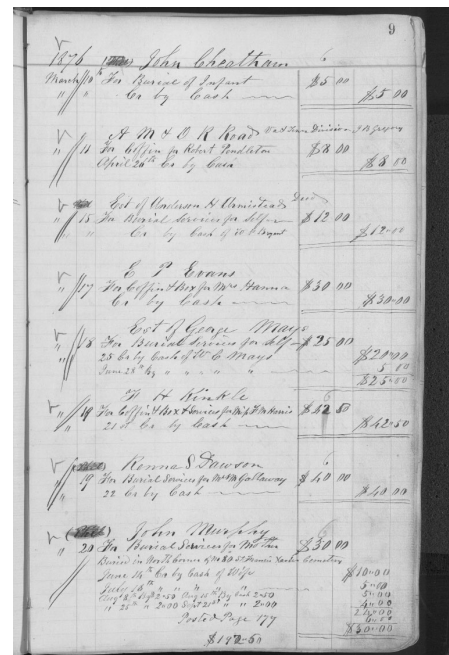 9
1876 John Cheatham 6
March 10th For Burial of Infant $5 00
" " Cr by Cash $5-00
A M & O R Road West Tenn Division J B Gregory
" 11 For Coffin for Robert Pendleton $8 00
April 20th Cr by Cash $8 00
Est of Anderson H Armistead Decd
" 15 For Burial Services for Self $12 00
" Cr by Cash of $12-00
E P Evans
" 17 For Coffin & Box for Mrs Hanna $30 00
Cr by Cash $30-00
Est of George Mays
" 18 For Burial Services for Self $25 00
25 Cr by Cash of Wm C Mays $20-00
June 28th By " " " " 5 00
$25-00
H Kinkle 6
" 19 For Coffin & Box & Services for $42 50
21st Cr by Cash $42-50
Renna S Dawson 6
" 19 For Burial Services for Galloway $40 00
" 22 Cr by Cash $40-00
John Murphy 6
" 20 For Burial Services for Mother $30 00
Buried in North Corner of St Francis Xavier Cemetery
June 14th Cr by Cash of Wife $10-00
July 10th " " " " 5-00
Aug 15th By Cash 2-50 5-00
" 25th " 2-00 Sept 21st " 2-00 4-00
24-00
Posted Page 177
$30-00
$192-50